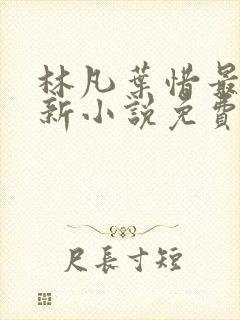 林凡葉惜最
新小說免費
尺長寸短